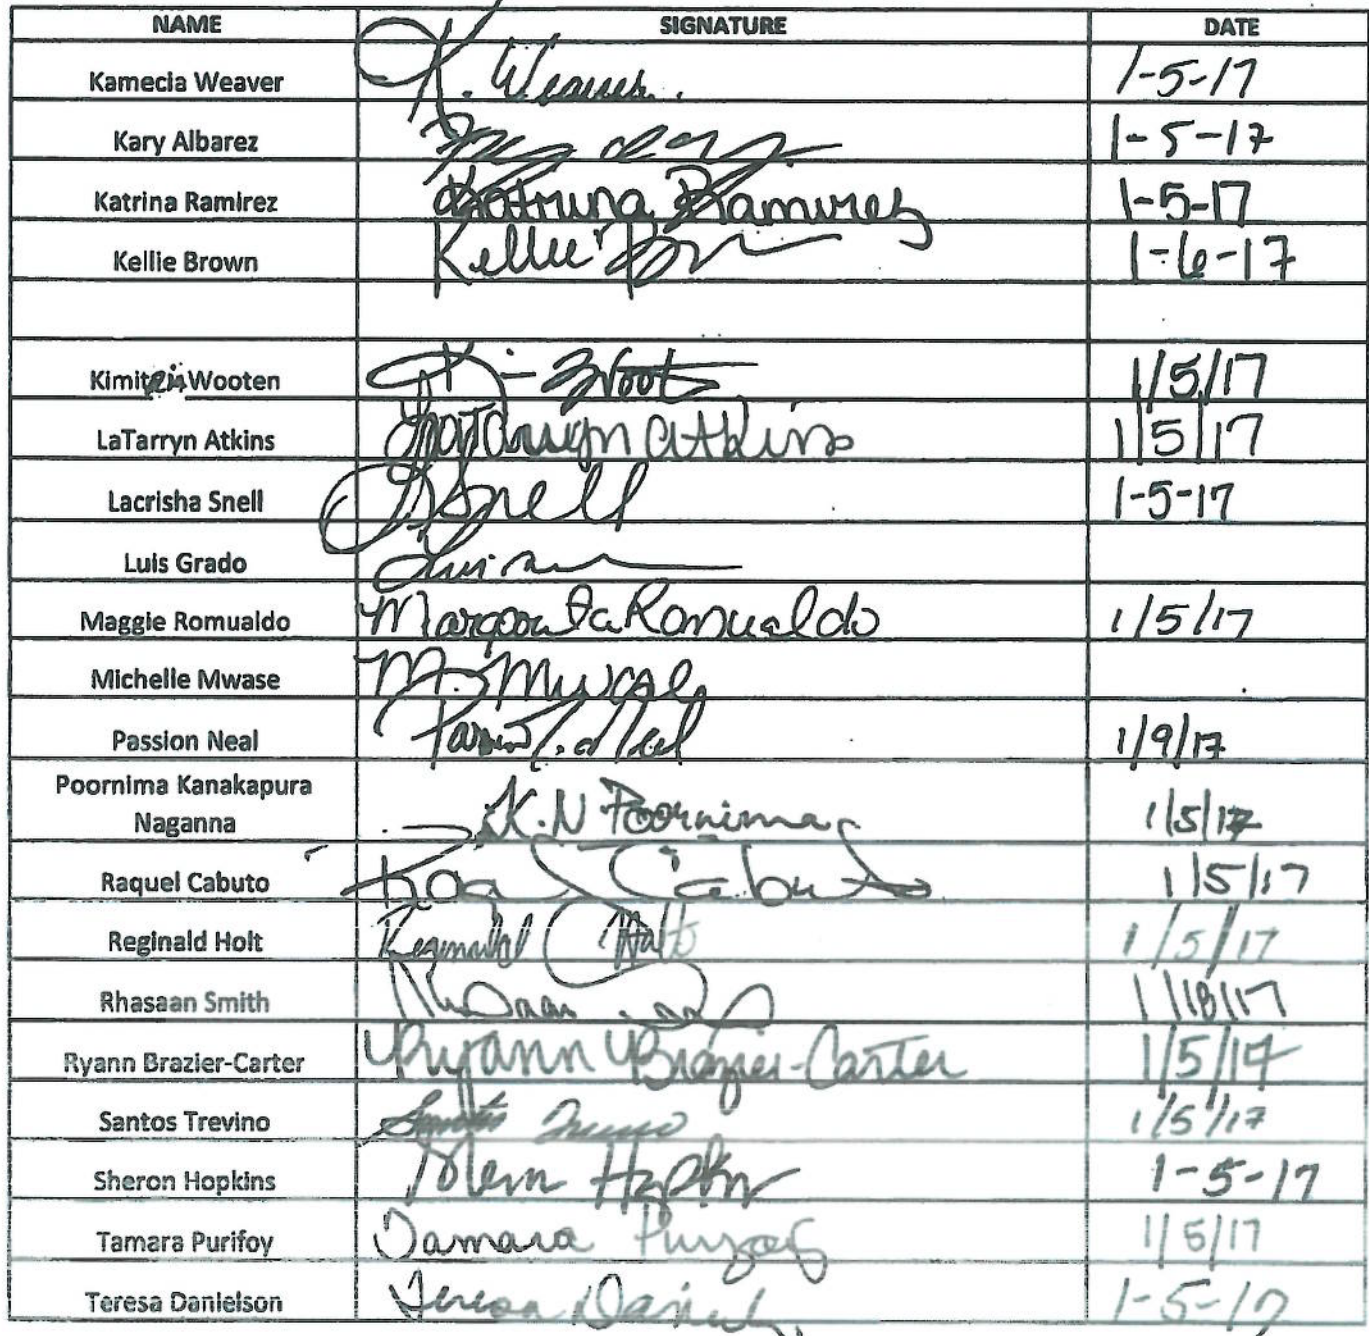 NAME SIGNATURE DATE
Kamecia Weaver K. Weaver. 1-5-17
Kary Albarez 1-5-17
Katrina Ramirez Katrina Ramirez 1-5-17
Kellie Brown Kellie 1-6-17
Wooten 1/5/17
LaTarryn Atkins LaTarryn Atkins 1/5/17
Lacrisha Snell Snell 1-5-17
Luis Grado Luis
Maggie Romualdo Margarita Romualdo 1/5/17
Michelle Mwase M. Mwase
Passion Neal 1/9/17
Poornima Kanakapura
Naganna K.N Poornima 1/5/17
Raquel Cabuto Cabuto 1/5/17
Reginald Holt Reginald Holt 1/5/17
Rhasaan Smith 1/18/17
Ryann Brazier-Carter Ryann Brazier-Carter 1/5/17
Santos Trevino Santos 1/5/17
Sheron Hopkins 1-5-17
Tamara Purifoy Tamara Purifoy 1/5/17
Teresa Danielson Teresa 1-5-17